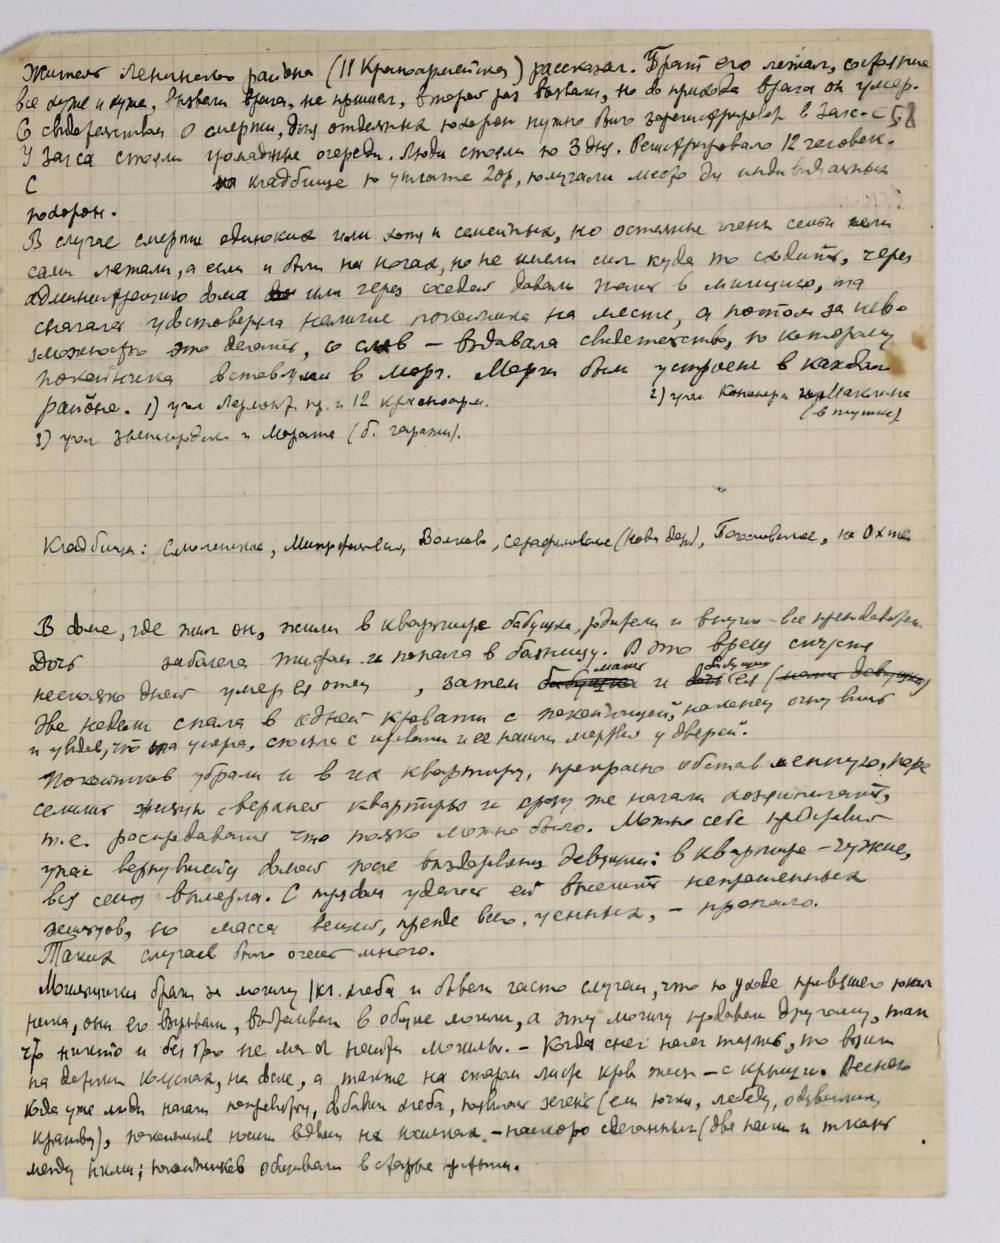 Житель Ленинского района (11 Красноармейская) рассказал. Брат его лежал, состояние
все хуже и хуже. Вызвали врача, не пришел, второй раз вызвали, но до прихода врача он умер.
Со свидетельством о смерти, для отдельных похорон нужно было зарегистрировать в Загс-е 58
У загса стояли громадные очереди. Люди стояли по 3 дня. Регистрировало 12 человек.
С на кладбище по уплате 20р, получали место для индивидуальных
похорон.
В случае смерти одиноких или хотя и семейных, но остальные члены семьи или
сами лежали, а если и были на ногах, но не имели сил куда то сходить, через
администрацию дома или через соседей давали знать в милицию, та
сначала удостоверяла наличие покойника на месте, а потом за нево-
зможностью это сделать, со слов – выдавала свидетельство, по которому
покойника в морг. Морги были устроены в каждом
районе. 1) угол Лермонт. пр. и 12 Красноарм. 2) угол
3) угол Звенигородской и Марата (б. гаражи).
Кладбища: Смоленское, Митрофаньевское, Волково, Серафимовское (Новая дер), Богословское, на Охте
В доме, где жил он, жили в квартире бабушка, родители и внучка – все
Дочь заболела тифом и попала в больницу. В это время спустя
несколько дней умер ея отец, затем мать и бабушка
Две недели спала в одной кровати с покойницей, наконец очнувшись
и увидев, что она умерла, сползла с кровати и ее нашли мертвой у дверей.
Покойников убрали и в их квартиру, прекрасно обставленную, пере
селились жильцы верхней квартиры и сразу же начали
т.е. распродавать что только можно было. Можно себе представить
ужас вернувшейся домой после выздоровления девушки: в квартире – чужие,
вся семья вымерла. С трудом удалось ей выселить непрошенных
жильцов, но масса вещей, прежде всего, ценных, – пропало.
Таких случаев было очень много.
Могильщики брали за могилу 1 кг. хлеба и бывали часто случаи, что по уходе привезшего покой
ника, они его вырывали, выбрасывали в общие могилы, а эту могилу продавали другому, так
что никто и без гро не мог найти могилы. – Когда снег начал таять, то возили
на детских колясках, на доске, а также на старом листе кров жести – с крыши. Весной
когда уже люди начали, добавили хлеба, появилась зелень (ели лебеду, одуванчики,
крапиву), покойников носили вдвоем на носилках – наскоро сделанных (две палки и ткань
между ними; покойников обшивали в старые